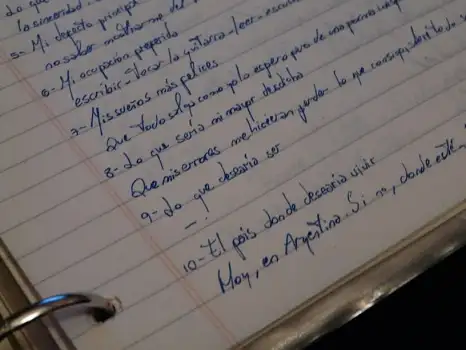 Lo que
la sinceridad
5- Mi defecto principal
no saber
6- Mi ocupación preferida
escribir - tocar la guitarra - leer - escuc
7- Mis sueños más felices
Que todo salga como yo lo espero para de una persona
8- Lo que sería mi mayor desdicha
Que mis errores me hicieran perder lo que conseguí
9- Lo que desearía ser
- !
10- El país donde desearía vivir
Hoy, en Argentina. Si no, donde esté